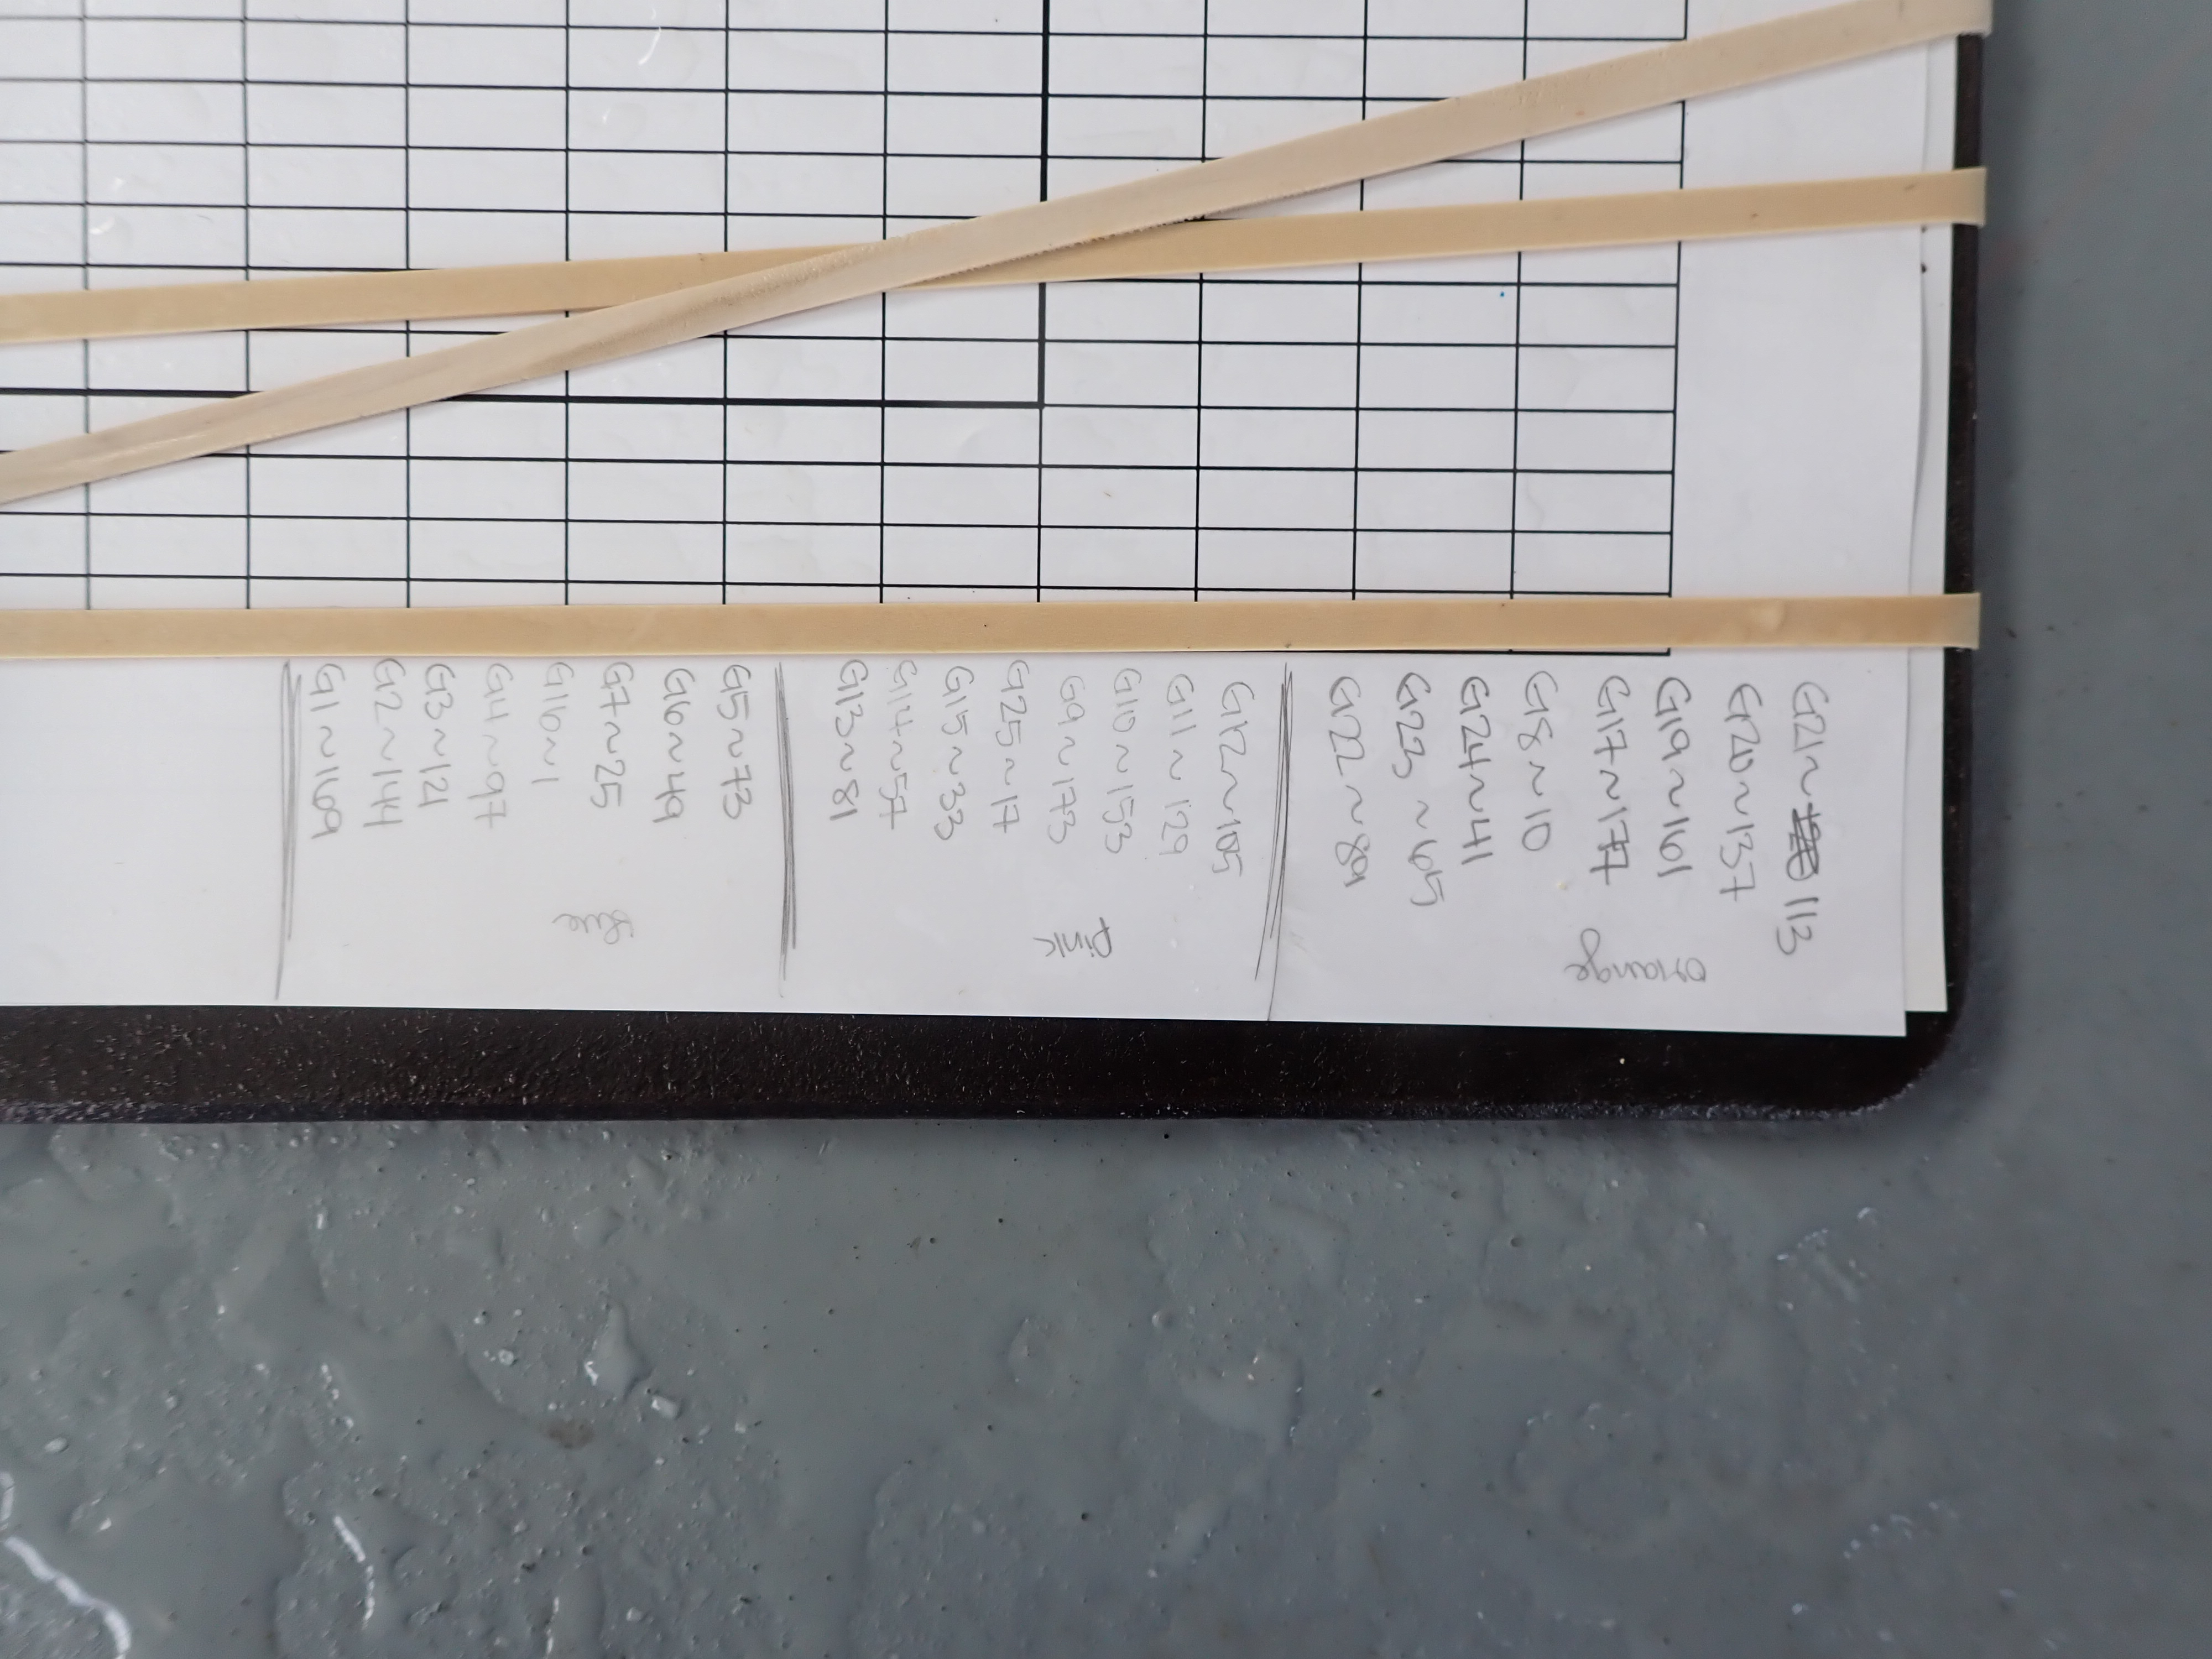 G21~113
G20~137
G19~161
G17~177
G8~10
G24~41
G23~65
G22~89
orange
G12~105
G11~129
G10~153
G9~173
G25~17
G15~33
G14~57
G13~81
Pink
G5~73
G6~49
G7~25
G16~1
G4~97
G3~121
G2~144
G1~169
Blue